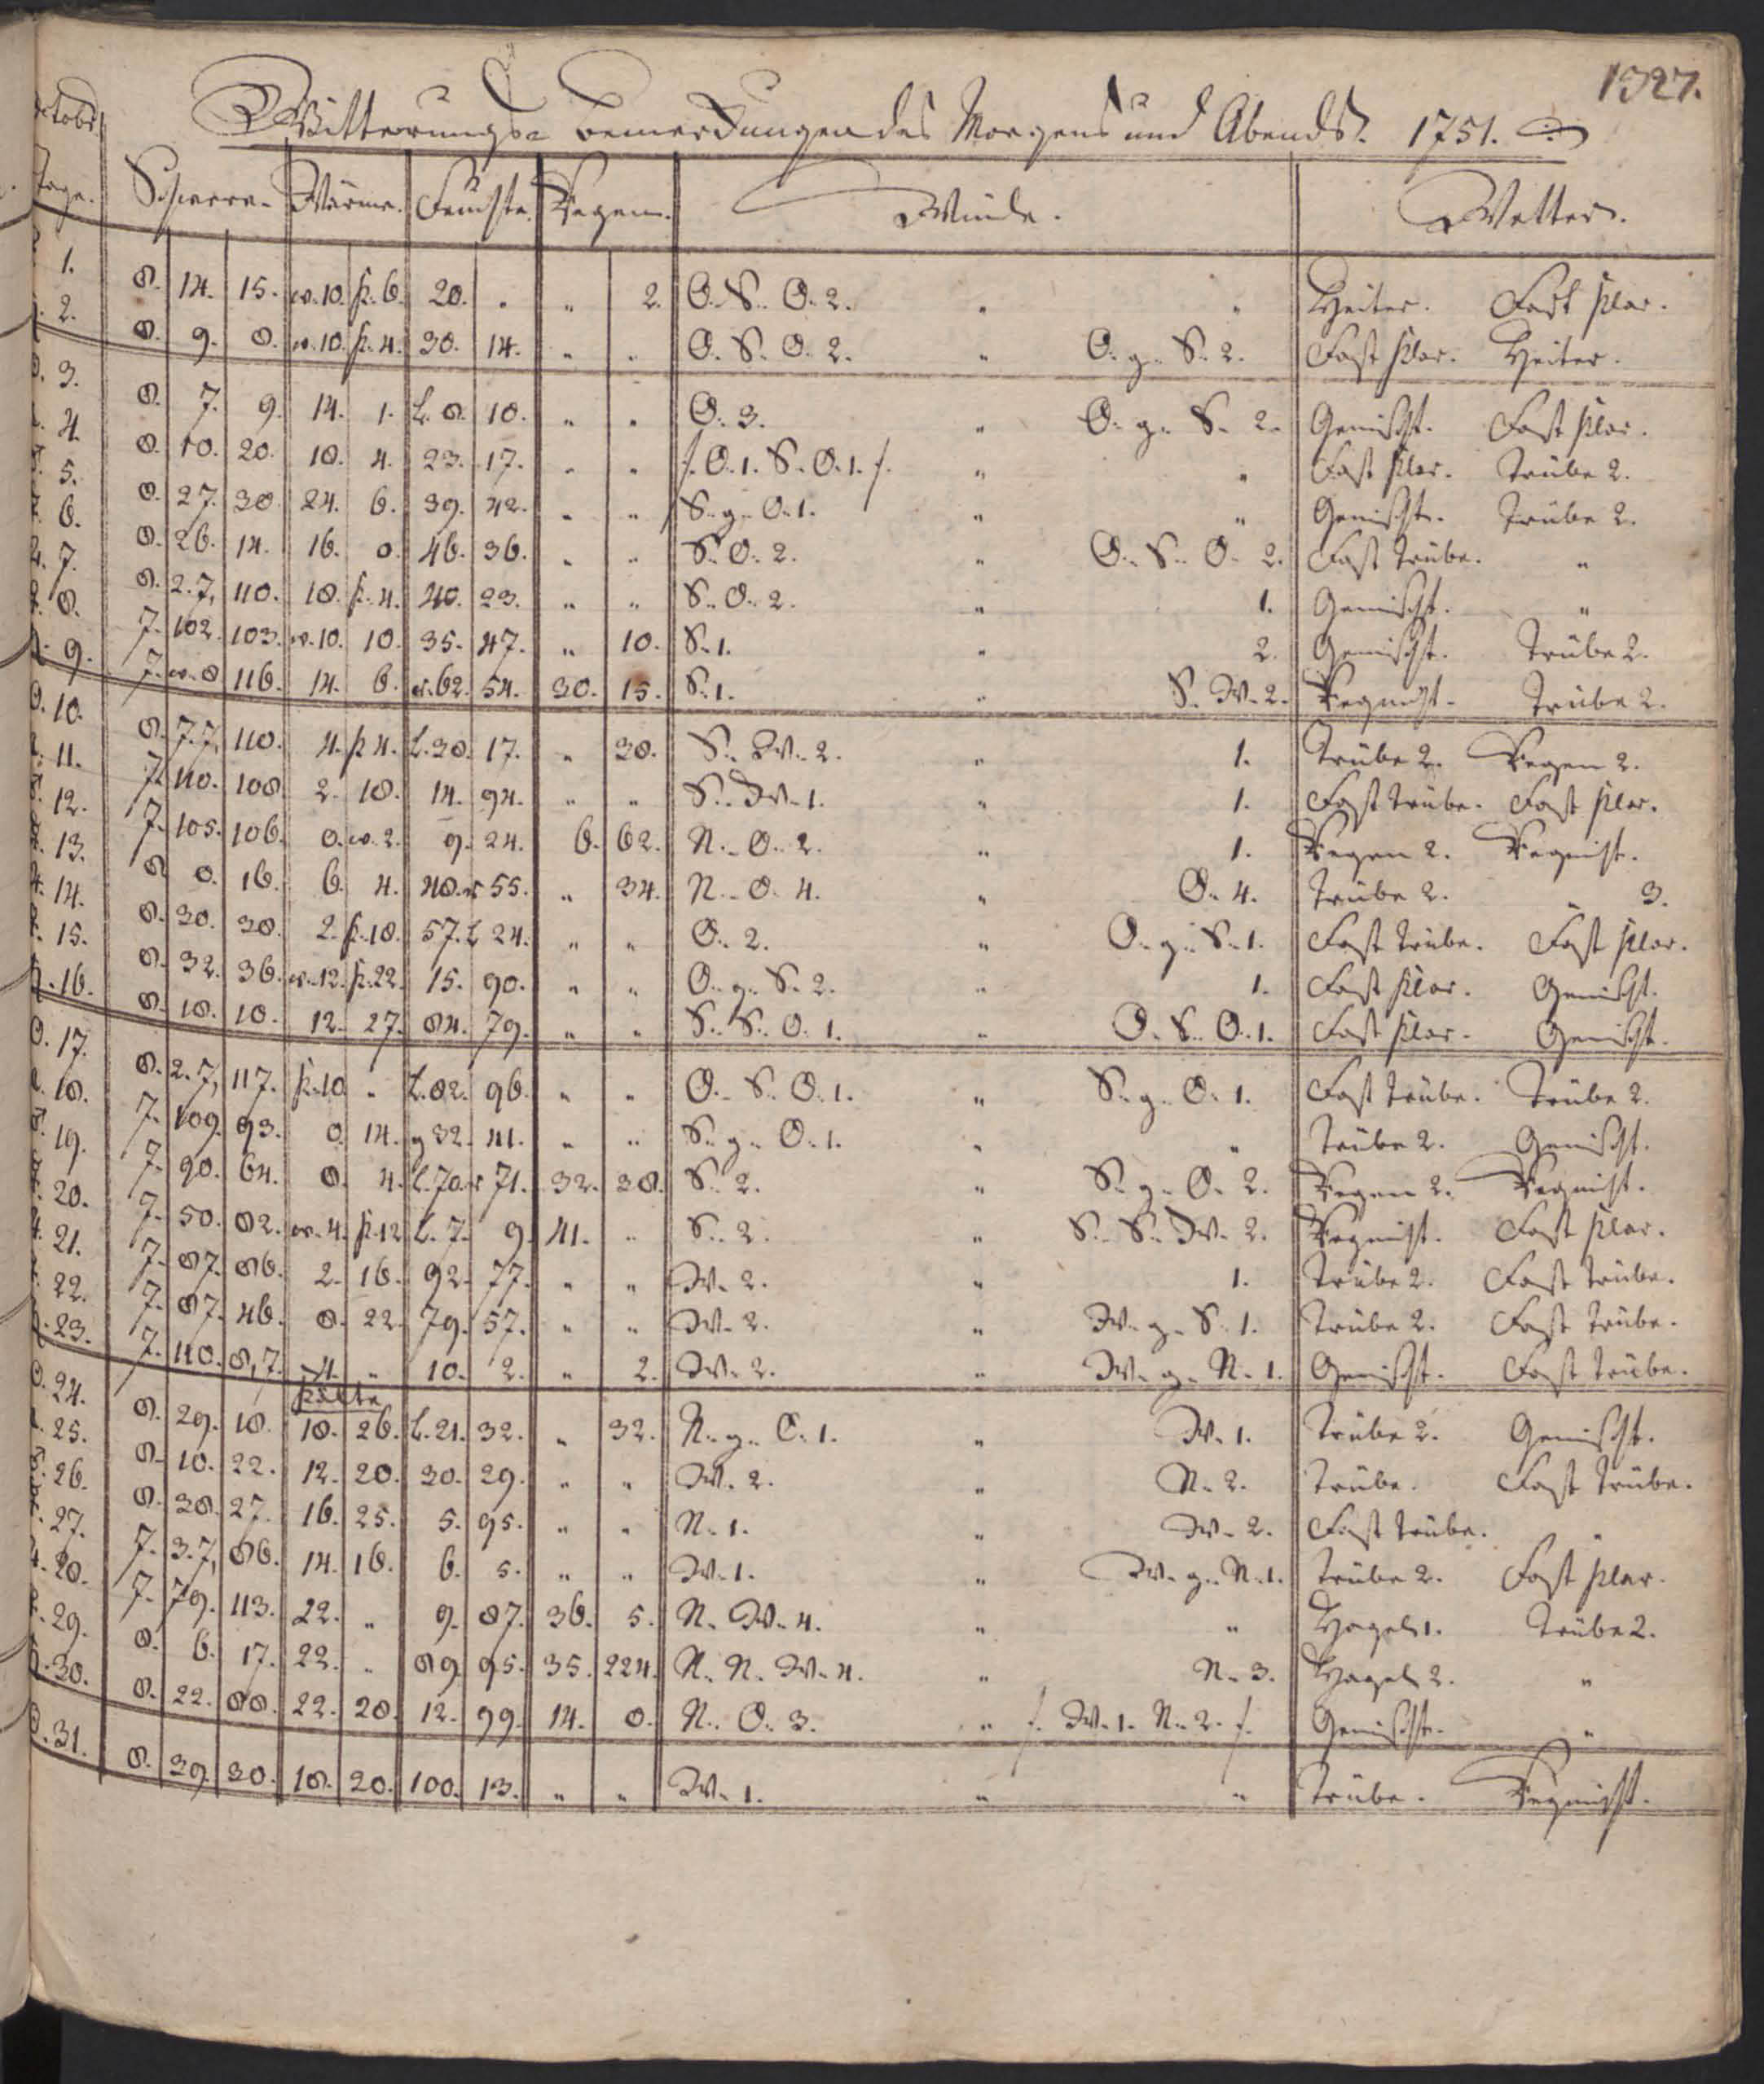 1327.
Witterungs- Bemerckungen des Morgens und Abends. 1751.
Octobr.
Tage. Schwere. Wärme. Feuchte. Regen. Winde. Wetter.
1. 8. 14. 15. w. 10. k. 6. 20. „ „ 2. O. S. O. 2. „ „ Heiter. Fast klar.
2. 8. 9. 8. w. 10. k. 4. 30. 14. „ „ O. S. O. 2. „ O. g. S. 2. Fast klar. Heiter.
3. 8. 7. 9. 14. 1. L. 8. 18. „ „ O. 3. „ O. g. S. 2. Gemischt. Fast klar.
4. 8. 10. 20. 18. 4. 23. 17. „ „ f. O. 1. S. O. 1. f. „ „ Fast klar. Trübe 2.
5. 8. 27. 30. 24. 6. 39. 42. „ „ S. g. O. 1. „ „ Gemischt. Trübe 2.
6. 8. 26. 14. 16. 0. 46. 36. „ „ S. O. 2. „ O. S. O. 2. Fast trübe. „
7. 8. 2. 7, 110. 18. k. 4. 40. 23. „ „ S. O. 2. „ 1. Gemischt. „
8. 7. 102. 103. w. 10. 10. 35. 47. „ 10. S. 1. „ 2. Gemischt. Trübe 2.
9. 7. 116. 14. 6. 62. 54. 30. 15. S. 1. „ S. W. 2. Regnicht. Trübe 2.
10. 8. 7. 7, 110. 4. k 4. L. 30. 17. „ 38. S. W. 2. „ 1. Trübe 2. Regen 2.
11. 7. 110. 108. 2. 18. 14. 94. „ „ S. W. 1. „ 1. Fast trübe. Fast klar.
12. 7. 105. 106. 0. w. 2. 9. 24. 6. 62. N. O. 2. „ 1. Regen 2. Regnicht.
13. 8. 0. 16. 6. 4. 48. r 55. „ 34. N. O. 4. „ O. 4. Trübe 2. „ 3.
14. 8. 30. 38. 2. k. 18. 57. L 24. „ „ O. 2. „ O. g. S. 1. Fast trübe. Fast klar.
15. 8. 32. 36. w. 12. k. 22. 15. 90. „ „ O. g. S. 2. „ 1. Fast klar. Gemischt.
16. 8. 18. 10. 12. 27. 84. 79. „ „ S. S. O. 1. „ O. S. O. 1. Fast klar. Gemischt.
17. 8. 2. 7, 117. k. 10. „ L. 82. 96. „ „ O. S. O. 1. „ S. g. O. 1. Fast trübe. Trübe 2.
18. 7. 109. 93. 0. 14. 32. 41. „ „ S. g. O. 1. „ „ Trübe 2. Gemischt.
19. 7. 90. 64. 8. 4. L. 70. r 71. 32. 38. S. 2. „ S. g. O. 2. Regen 2. Regnicht.
20. 7. 50. 82. w. 4. k. 12. L. 7. 9. 41. „ S. 2. „ S. S. W. 2. Regnicht. Fast klar.
21. 7. 87. 86. 2. 16. 92. 77. „ „ W. 2. „ 1. Trübe 2. Fast trübe.
22. 7. 87. 46. 8. 22. 79. 57. „ „ W. 2. „ W. g. S. 1. Trübe 2. Fast trübe.
23. 7. 110. 8, 7. 4. „ 10. 2. „ 2. W. 2. „ W. g. N. 1. Gemischt. Fast trübe.
Kälte
24. 8. 29. 18. 18. 26. L. 21. 32. „ 32. N. g. O. 1. „ W. 1. Trübe 2. Gemischt.
25. 8. 10. 22. 12. 20. 30. 29. „ „ W. 2. „ N. 2. Trübe. Fast trübe.
26. 8. 38. 27. 16. 25. 5. 95. „ „ N. 1. „ W. 2. Fast trübe. „
27. 7. 3. 7, 86. 14. 16. 6. 5. „ „ W. 1. „ W. g. N. 1. Trübe 2. Fast klar.
28. 7. 79. 113. 22. „ 9. 87. 36. 5. N. W. 4. „ „ Hagel 1. Trübe 2.
29. 8. 6. 17. 22. „ 89. 95. 35. 224. N. N. W. 4. „ N. 3. Hagel 2. „
30. 8. 22. 88. 22. 28. 12. 99. 14. 8. N. O. 3. „ f. W. 1. N. 2. f. Gemischt. „
31. 8. 39. 30. 18. 20. 100. 13. „ „ W. 1. „ „ Trübe. Regnicht.